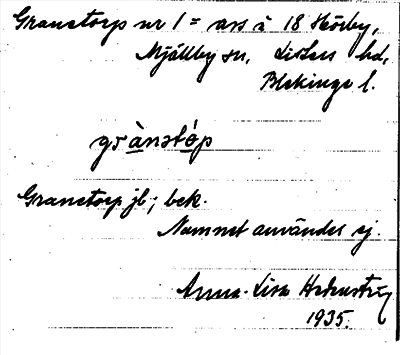 Granetorp nr 1 = avs å 18 Hörby,
Mjällby sn, Listers hd,
Blekinge l.
grànstóp
Granetorp jb; bek.
Namnet användes ej.
Anna-Lisa
1935.